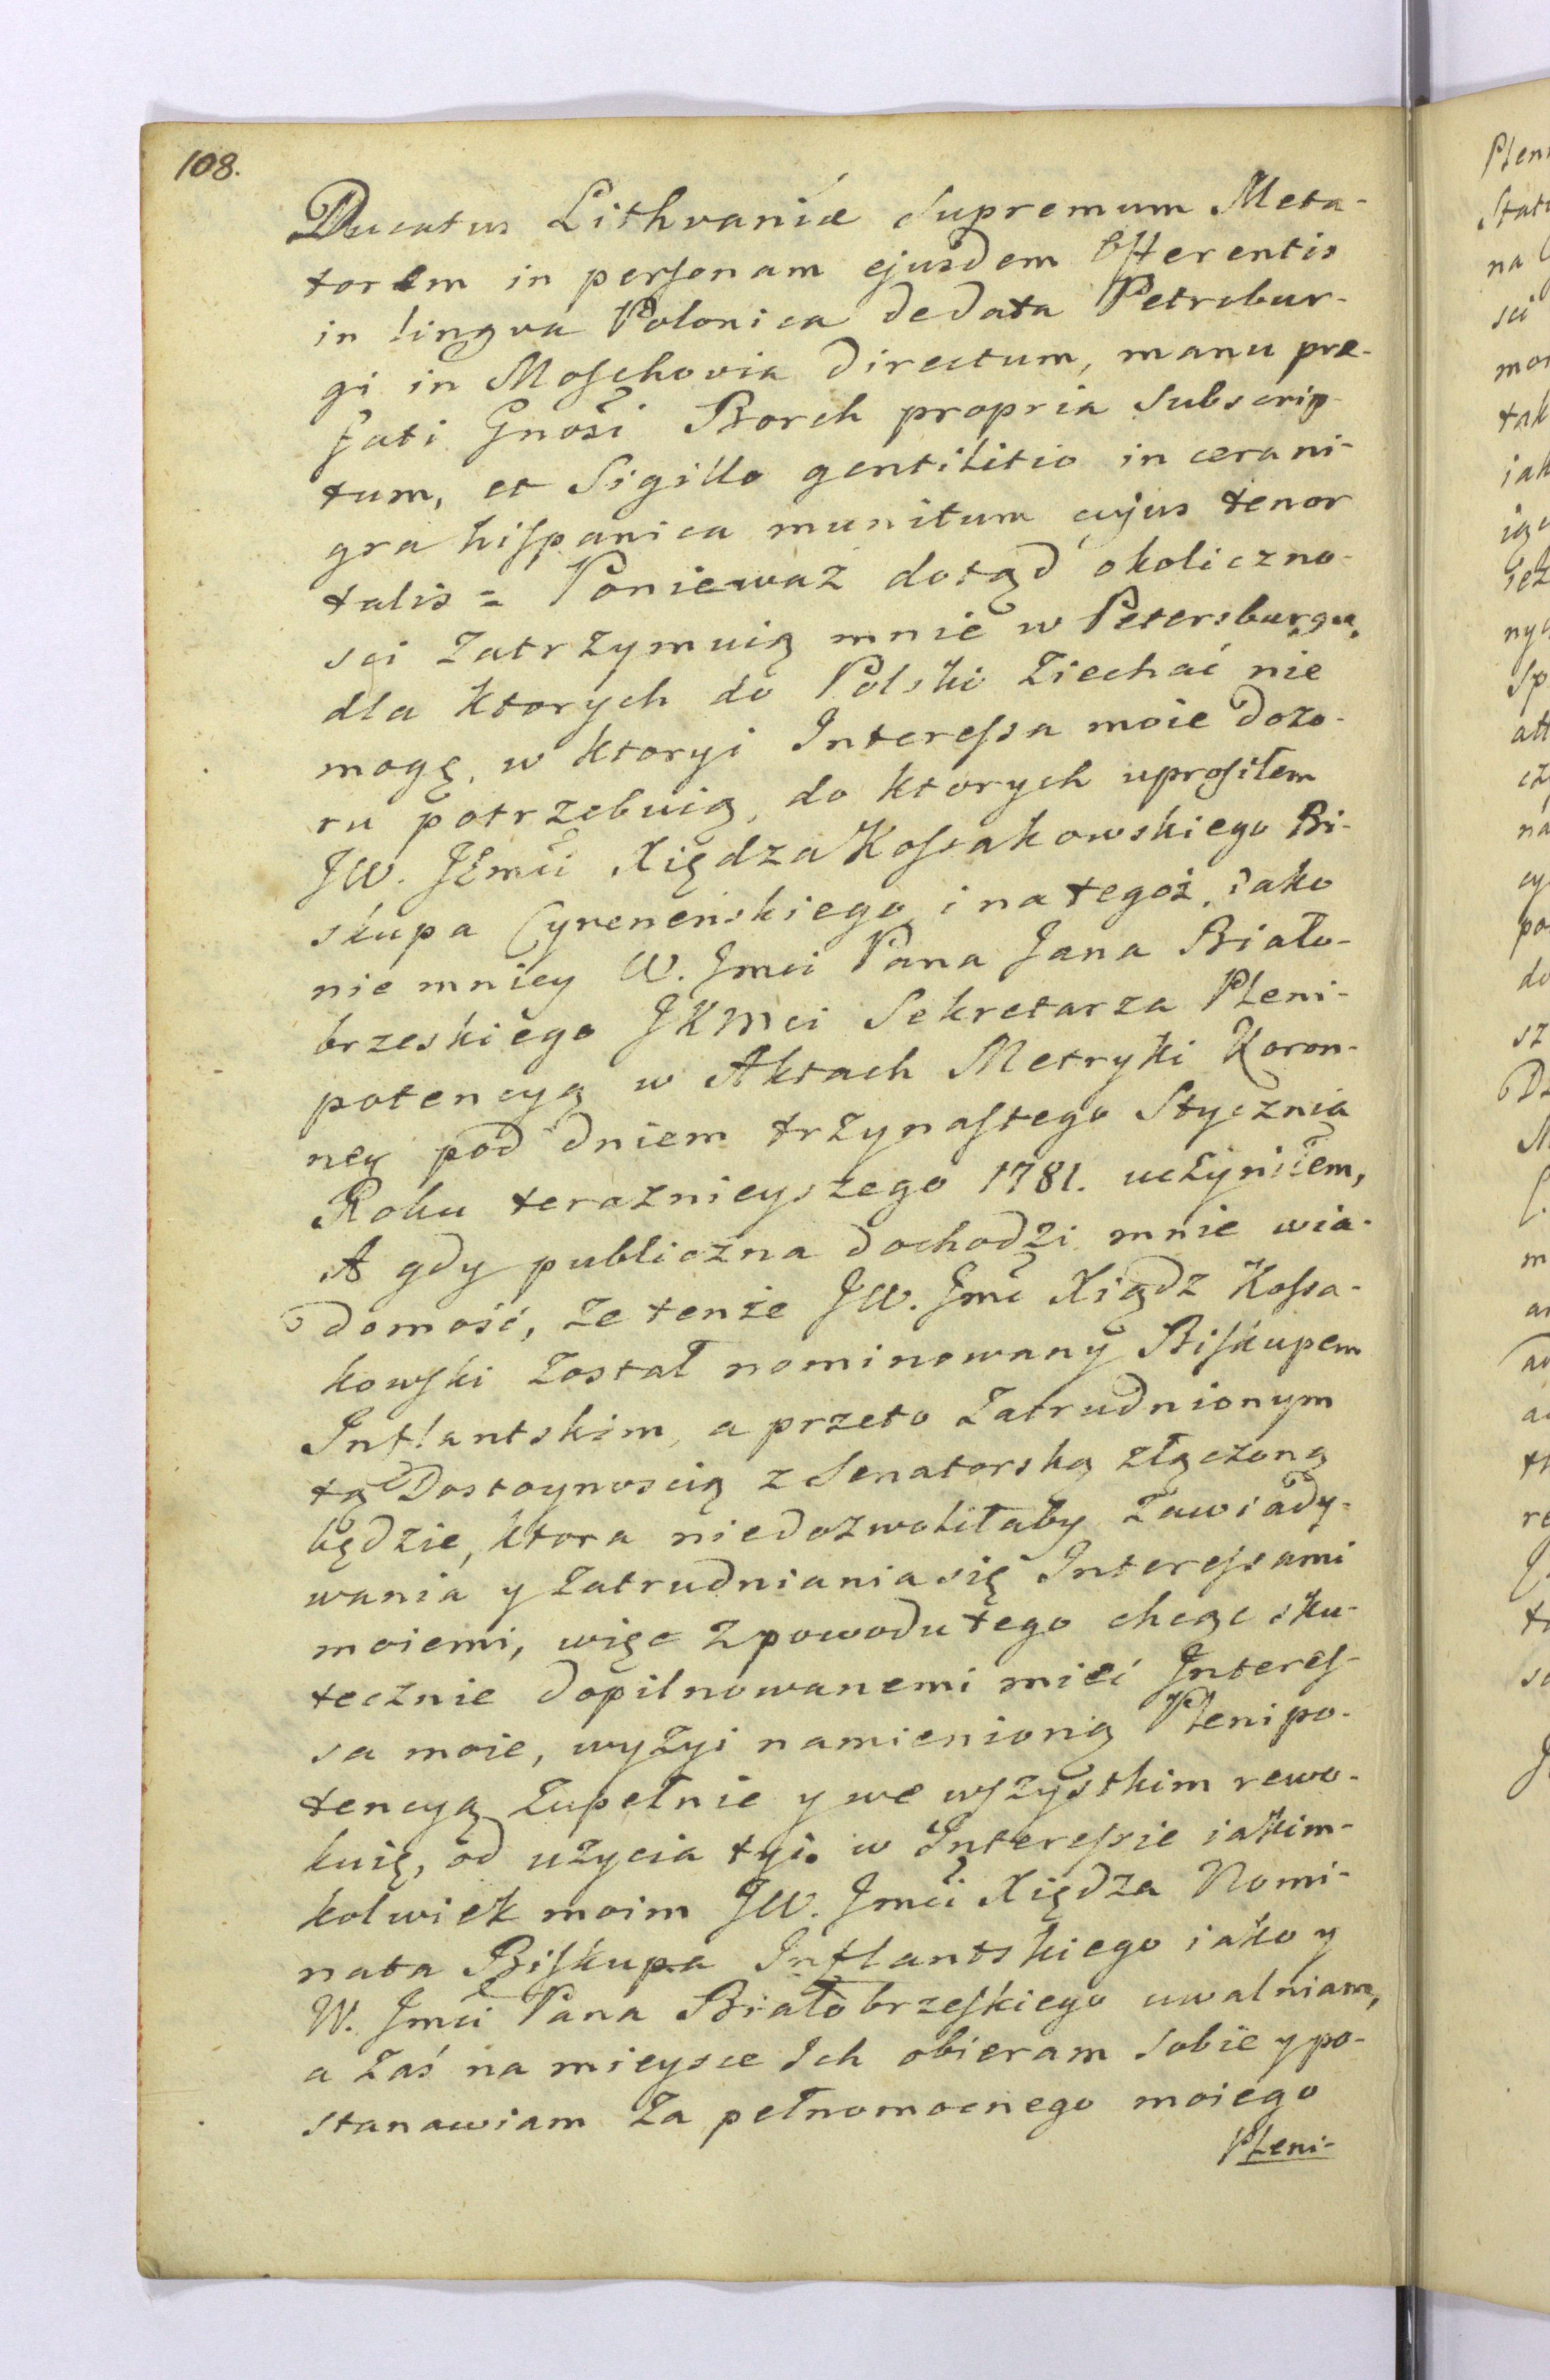 108.
Ducatus Lithvaniæ Supremum Meta-
torem in personam ejusdem Offerentis
in lingva Polonica de data Petrobur-
gi in Moschovia directum, manu præ-
fati Gnosi Borch propria Subscrip-
tum, et Sigillo gentilitio in cera ni-
gra hispanica munitum cujus tenor
talis = Ponieważ dotąd okoliczno-
sci zatrzymuią mnie w Petersburgu,
dla ktorych do Polski ziechać nie
mogę, w ktoryi Interessa moie dozo-
ru potrzebuią, do ktorych uprosiłem
JW. Jmci Xiędza Kossakowskiego Bi-
skupa Cyreneńskiego i na tegoż, iako
nie mniey W. Jmci Pana Jana Biało-
brzeskiego JKMci Sekretarza Pleni-
potencyą w Aktach Metryki Koron-
ney pod dniem trzynastego Stycznia
Roku teraznieyszego 1781. uczyniłem,
A gdy publiczna dochodzi mnie wia-
domość, że tenże JW. Jmć Xiądz Kossa-
kowski został nominowany Biskupem
Inflantskim, a przeto zatrudnionym
tą Dostoynoscią z Senatorską złączoną
będzie, ktora niedozwoliłaby zawiady-
wania y zatrudniania się Interessami
moiemi, więc z powodu tego chcąc sku-
tecznie dopilnowanemi mieć Interes-
sa moie, wyżyi namienioną Plenipo-
tencyą zupełnie y we wszystkim rewo-
kuię, od użycia tyi w Interessie iakim-
kolwiek moim JW. Jmci Xiędza Nomi-
nata Biskupa Inflantskiego iako y
W. Jmci Pana Białobrzeskiego uwalniam,
a zaś na mieysce Ich obieram sobie y po-
stanawiam za pełnomocnego moiego
Pleni-